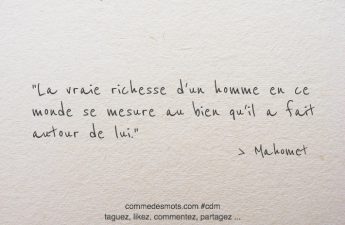 "La vraie richesse d'un homme en ce
monde se mesure au bien qu'il a fait
autour de lui."
> Mahomet
commedesmots.com #cdm
taguez, likez, commentez, partagez ...